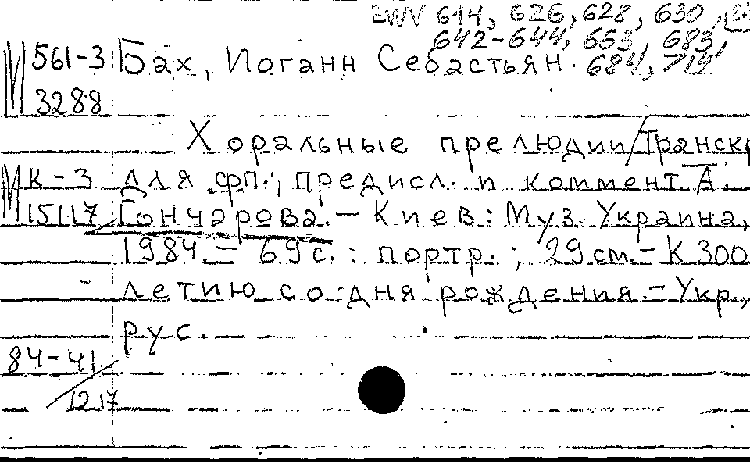 BWV 614, 626, 628, 630,
642-644, 653, 683,
М 561-3 Бах, Иоганн Себастьян. 684, 714
3288
Хоральные прелюдии/Транскр
М К-3 для фп., предисл. и коммент. А.
15117 Гончарова. - Киев: Муз. Украина,
1984 - 69 с.: портр.; 29 см. - К 300
летию со дня рождения. - Укр.,
рус.
84-41
1217